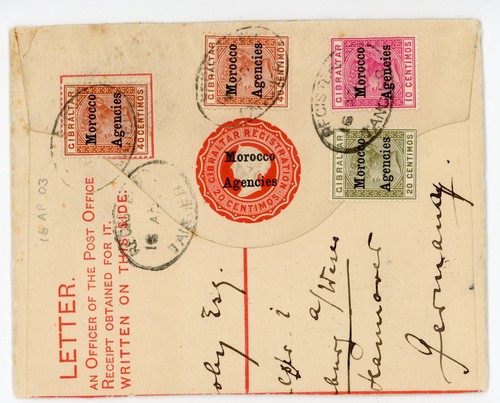 GIBRALTAR
Morocco
Agencies
40 CENTIMOS
GIBRALTAR
Morocco
Agencies
40 CENTIMOS
GIBRALTAR
Morocco
Agencies
10 CENTIMOS
GIBRALTAR
Morocco
Agencies
20 CENTIMOS
GIBRALTAR REGISTRATION
Morocco
Agencies
20 CENTIMOS
TANGIER
16 AP 03
LETTER.
AN OFFICER OF THE POST OFFICE
RECEIPT OBTAINED FOR IT.
WRITTEN ON THIS SIDE:
Esq.
a/Weser
Hannover
Germany.